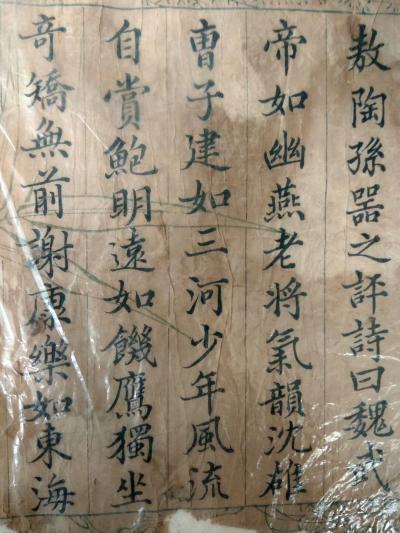 敖陶孫器之評詩曰魏武
帝如幽燕老將氣韻沈雄
曹子建如三河少年風流
自賞鮑明遠如饑鷹獨坐
奇矯無前謝康樂如東海